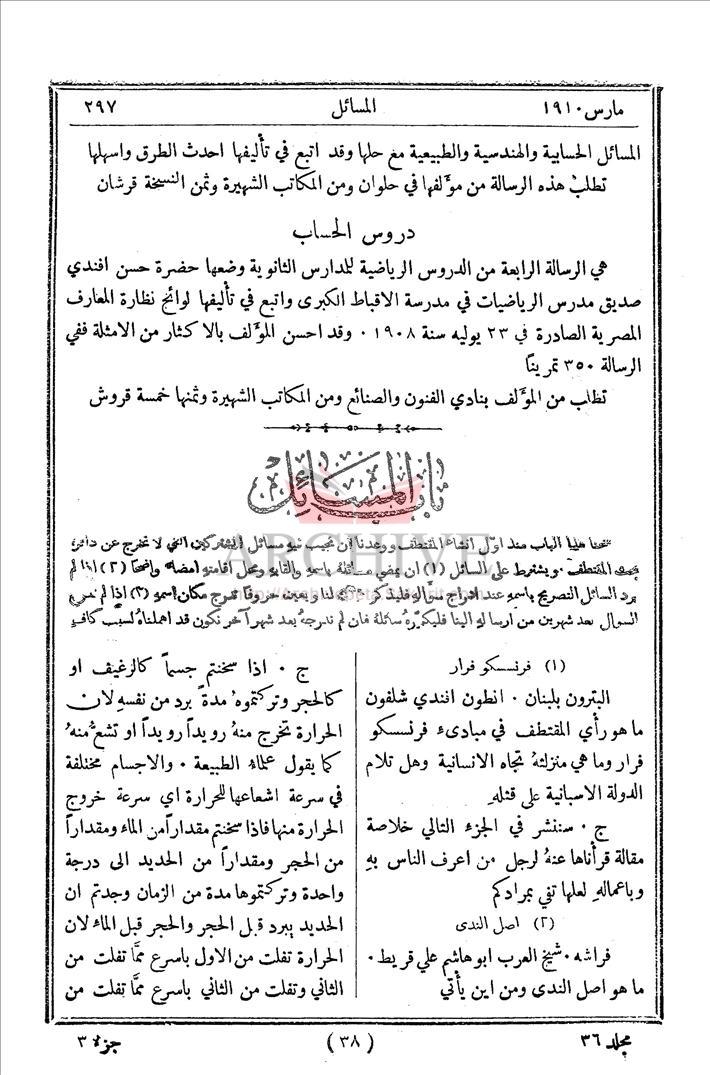 مارس ١٩١٠
المسائل
٢٩٧
المسائل الحسابية والهندسية والطبيعية مع حلها وقد اتبع في تأليفها احدث الطرق واسهلها
تطلب هذه الرسالة من مؤلفها في حلوان ومن المكاتب الشهيرة وثمن النسخة قرشان
دروس الحساب
هي الرسالة الرابعة من الدروس الرياضية للمدارس الثانوية وضعها حضرة حسن افندي
صديق مدرس الرياضيات في مدرسة الاقباط الكبرى واتبع في تأليفها لوائح نظارة المعارف
المصرية الصادرة في ٢٣ يوليه سنة ١٩٠٨ ٠ وقد احسن المؤلف بالاكثار من الامثلة ففي
الرسالة ٣٥٠ تمريناً
تطلب من المؤلف بنادي الفنون والصنائع ومن المكاتب الشهيرة وثمنها خمسة قروش
باب المسائل
ARCHIVE
فتحنا هذا الباب منذ اول انشاء المقتطف ووعدنا ان نجيب فيه مسائل المشتركين التي لا تخرج عن دائرة
بحث المقتطف ٠ ويشترط على السائل (١) ان يمضي مسائله باسمه والقابه ومحل اقامته امضاءً واضحاً (٢) اذا لم
يرد السائل التصريح باسمه عند ادراج سؤاله فليذكر ذلك لنا ويعين حروفاً تدرج مكان اسمه (٣) اذا لم ندرج
السؤال بعد شهرين من ارساله الينا فليكرره سائله فان لم ندرجه بعد شهر آخر نكون قد اهملناه لسبب كافٍ
(١) فرنسسكو فرار
البترون بلبنان ٠ انطون افندي شلفون
ما هو رأي المقتطف في مبادىء فرنسسكو
فرار وما هي منزلته تجاه الانسانية وهل تلام
الدولة الاسبانية على قتله
ج ٠ سننشر في الجزء التالي خلاصة
مقالة قرأناها عنه لرجل من اعرف الناس به
وباعماله لعلها تفي بمرادكم
(٢) اصل الندى
فراشه ٠ شيخ العرب ابو هاشم علي قريط ٠
ما هو اصل الندى ومن اين يأتي
ج ٠ اذا سخنتم جسماً كالرغيف او
كالحجر وتركتموه مدة برد من نفسه لان
الحرارة تخرج منه رويداً رويداً او تشع منه
كما يقول علماء الطبيعة ٠ والاجسام مختلفة
في سرعة اشعاعها للحرارة اي سرعة خروج
الحرارة منها فاذا سخنتم مقداراً من الماء ومقداراً
من الحجر ومقداراً من الحديد الى درجة
واحدة وتركتموها مدة من الزمان وجدتم ان
الحديد يبرد قبل الحجر والحجر قبل الماء لان
الحرارة تفلت من الاول باسرع مما تفلت من
الثاني وتفلت من الثاني باسرع مما تفلت من
مجلد ٣٦
(٣٨)
جزء ٣